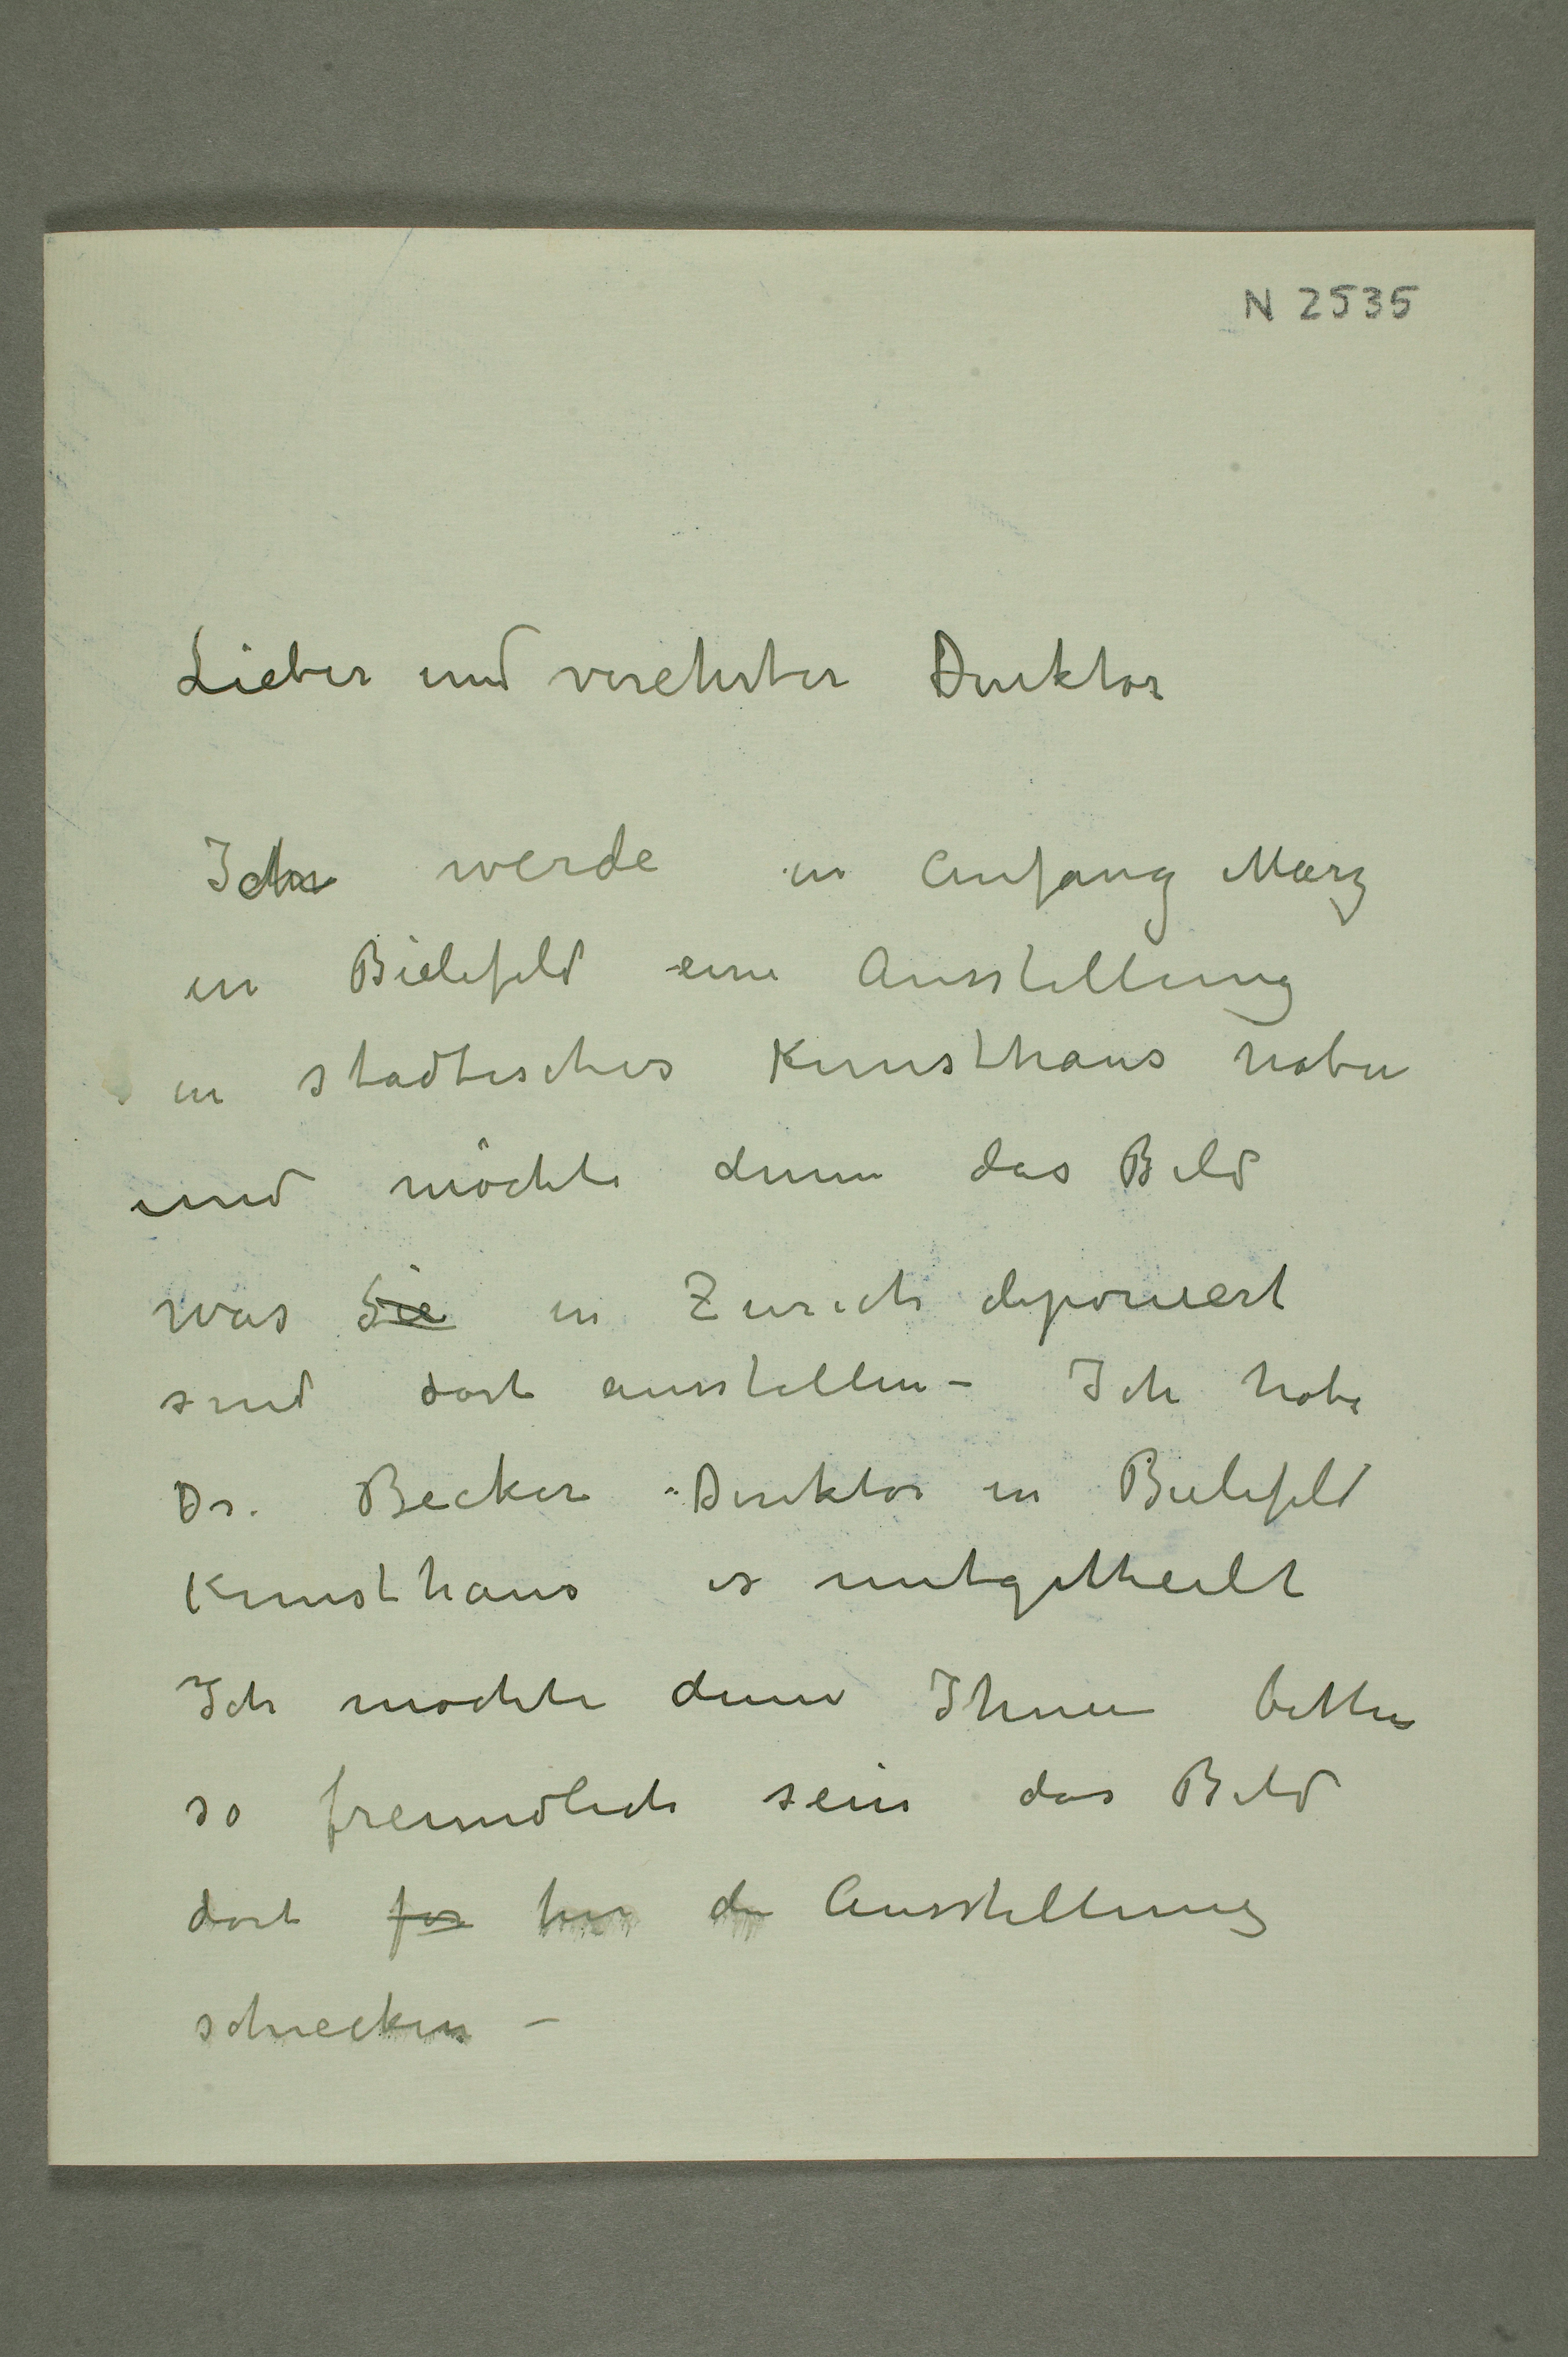 N 2535
Lieber und verehrter Direktor
Ich werde in Anfang März
in Bielefeld eine Ausstellung
in stadtisches Kunsthaus haben
und möchte denn das Bild
was Sie in Zurich deponiert
sind dort ausstellen – Ich habe
Dr. Becker Direktor in Bielefeld
Kunsthaus es mitgetheilt
Ich mochte denn Ihnen bitten
so freundlich sein das Bild
dort for fur die Ausstellung
schiecken –